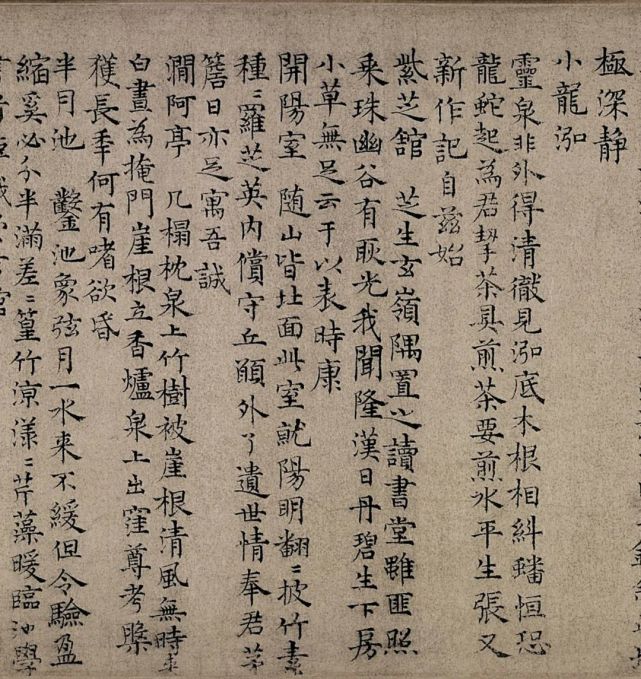 極深静
小龍泓
靈泉非外得清徹見泓底木根相糾蟠恒恐
龍蛇起為君挈茶具煎茶要煎水平生張又
新作記自兹始
紫芝館 芝生玄嶺隅置之讀書堂雖匪照
乘珠幽谷有耿光我聞隆漢日丹碧生下房
小草無足云于以表時康
開陽室 隨山皆北面此室就陽明翻〻披竹素
種〻羅芝英内償守丘願外了遺世情奉君茅
簷日亦足寓吾誠
澗阿亭 几榻枕泉上竹樹被崖根清風無時來
白晝為掩門崖根立香爐泉上出窪尊考槃
獲長年何有嗜欲昏
半月池 鑿池象弦月一水来不緩但令驗盈
縮奚必分半滿差〻篁竹凉漾〻芹藻暖臨池學